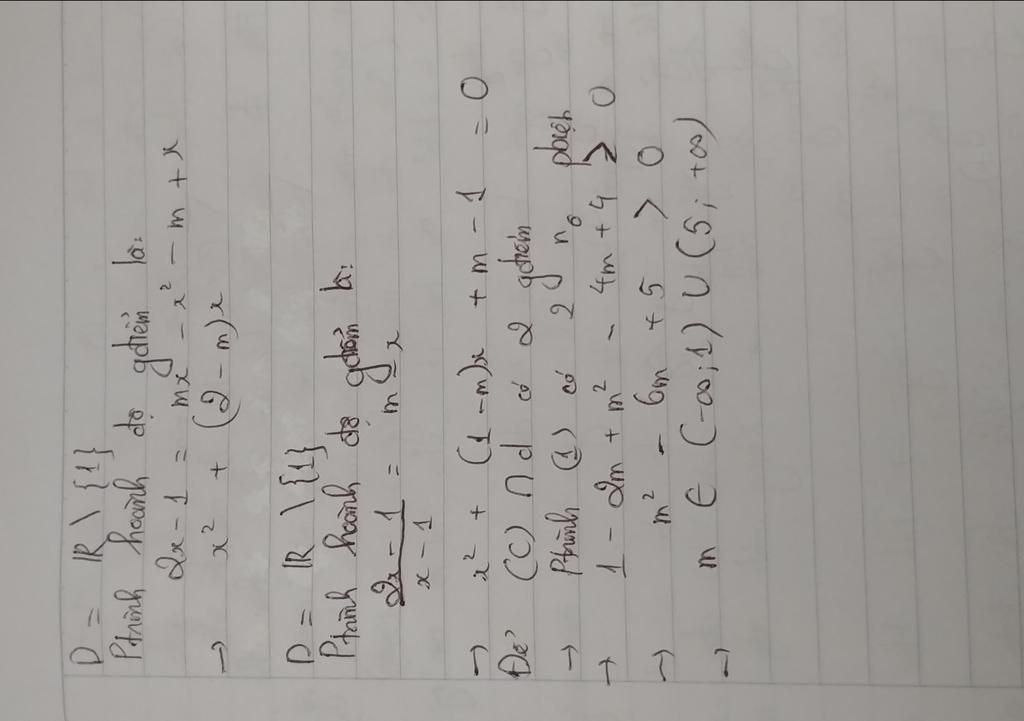 D = ℝ \ {1}
Ptrình hoành độ gđiểm là:
2x - 1 = mx - x² - m + x
→ x² + (2 - m)x
D = ℝ \ {1}
Ptrình hoành độ gđiểm là:
(2x - 1)/(x - 1) = m - x
→ x² + (1 - m)x + m - 1 = 0
Để (C) ∩ d có 2 gđiểm
→ Ptrình (1) có 2 n₀ pbiệt
→ 1 - 2m + m² - 4m + 4 > 0
→ m² - 6m + 5 > 0
→ m ∈ (-∞; 1) ∪ (5; +∞)